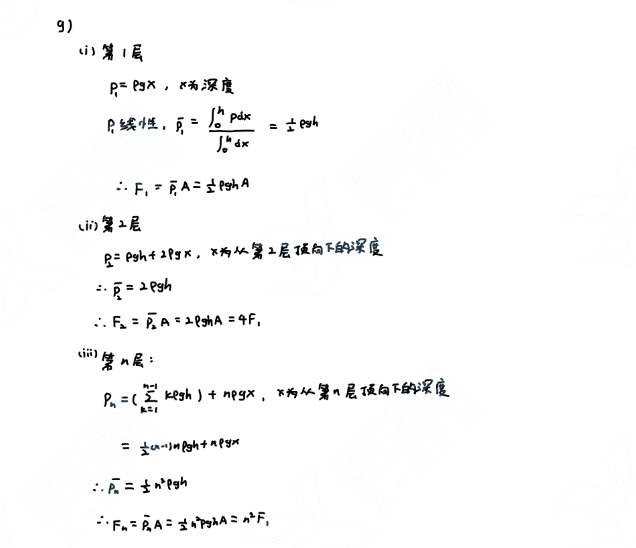 9)
(i) 第1层
P₁ = ρgx , x为深度
P₁线性, P̄₁ = ∫₀ʰ pdx / ∫₀ʰ dx = ½ρgh
∴ F₁ = P̄₁A = ½ρghA
(ii) 第2层
P₂ = ρgh + 2ρgx , x为从第2层顶向下的深度
∴ P̄₂ = 2ρgh
∴ F₂ = P̄₂A = 2ρghA = 4F₁
(iii) 第n层:
Pₙ = (∑ₖ₌₁ⁿ⁻¹ kρgh) + nρgx , x为从第n层顶向下的深度
= ½(n-1)nρgh + nρgx
∴ P̄ₙ = ½n²ρgh
∴ Fₙ = P̄ₙA = ½n²ρghA = n²F₁